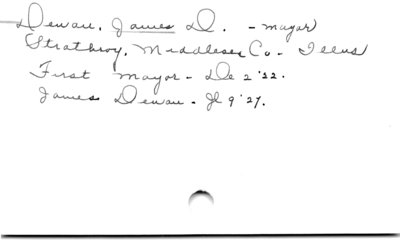 Dewan, James D. - mayor
Strathroy, Middlesex Co. - Illus
First mayor - De 2 '22.
James Dewan - Jl 9 '27.